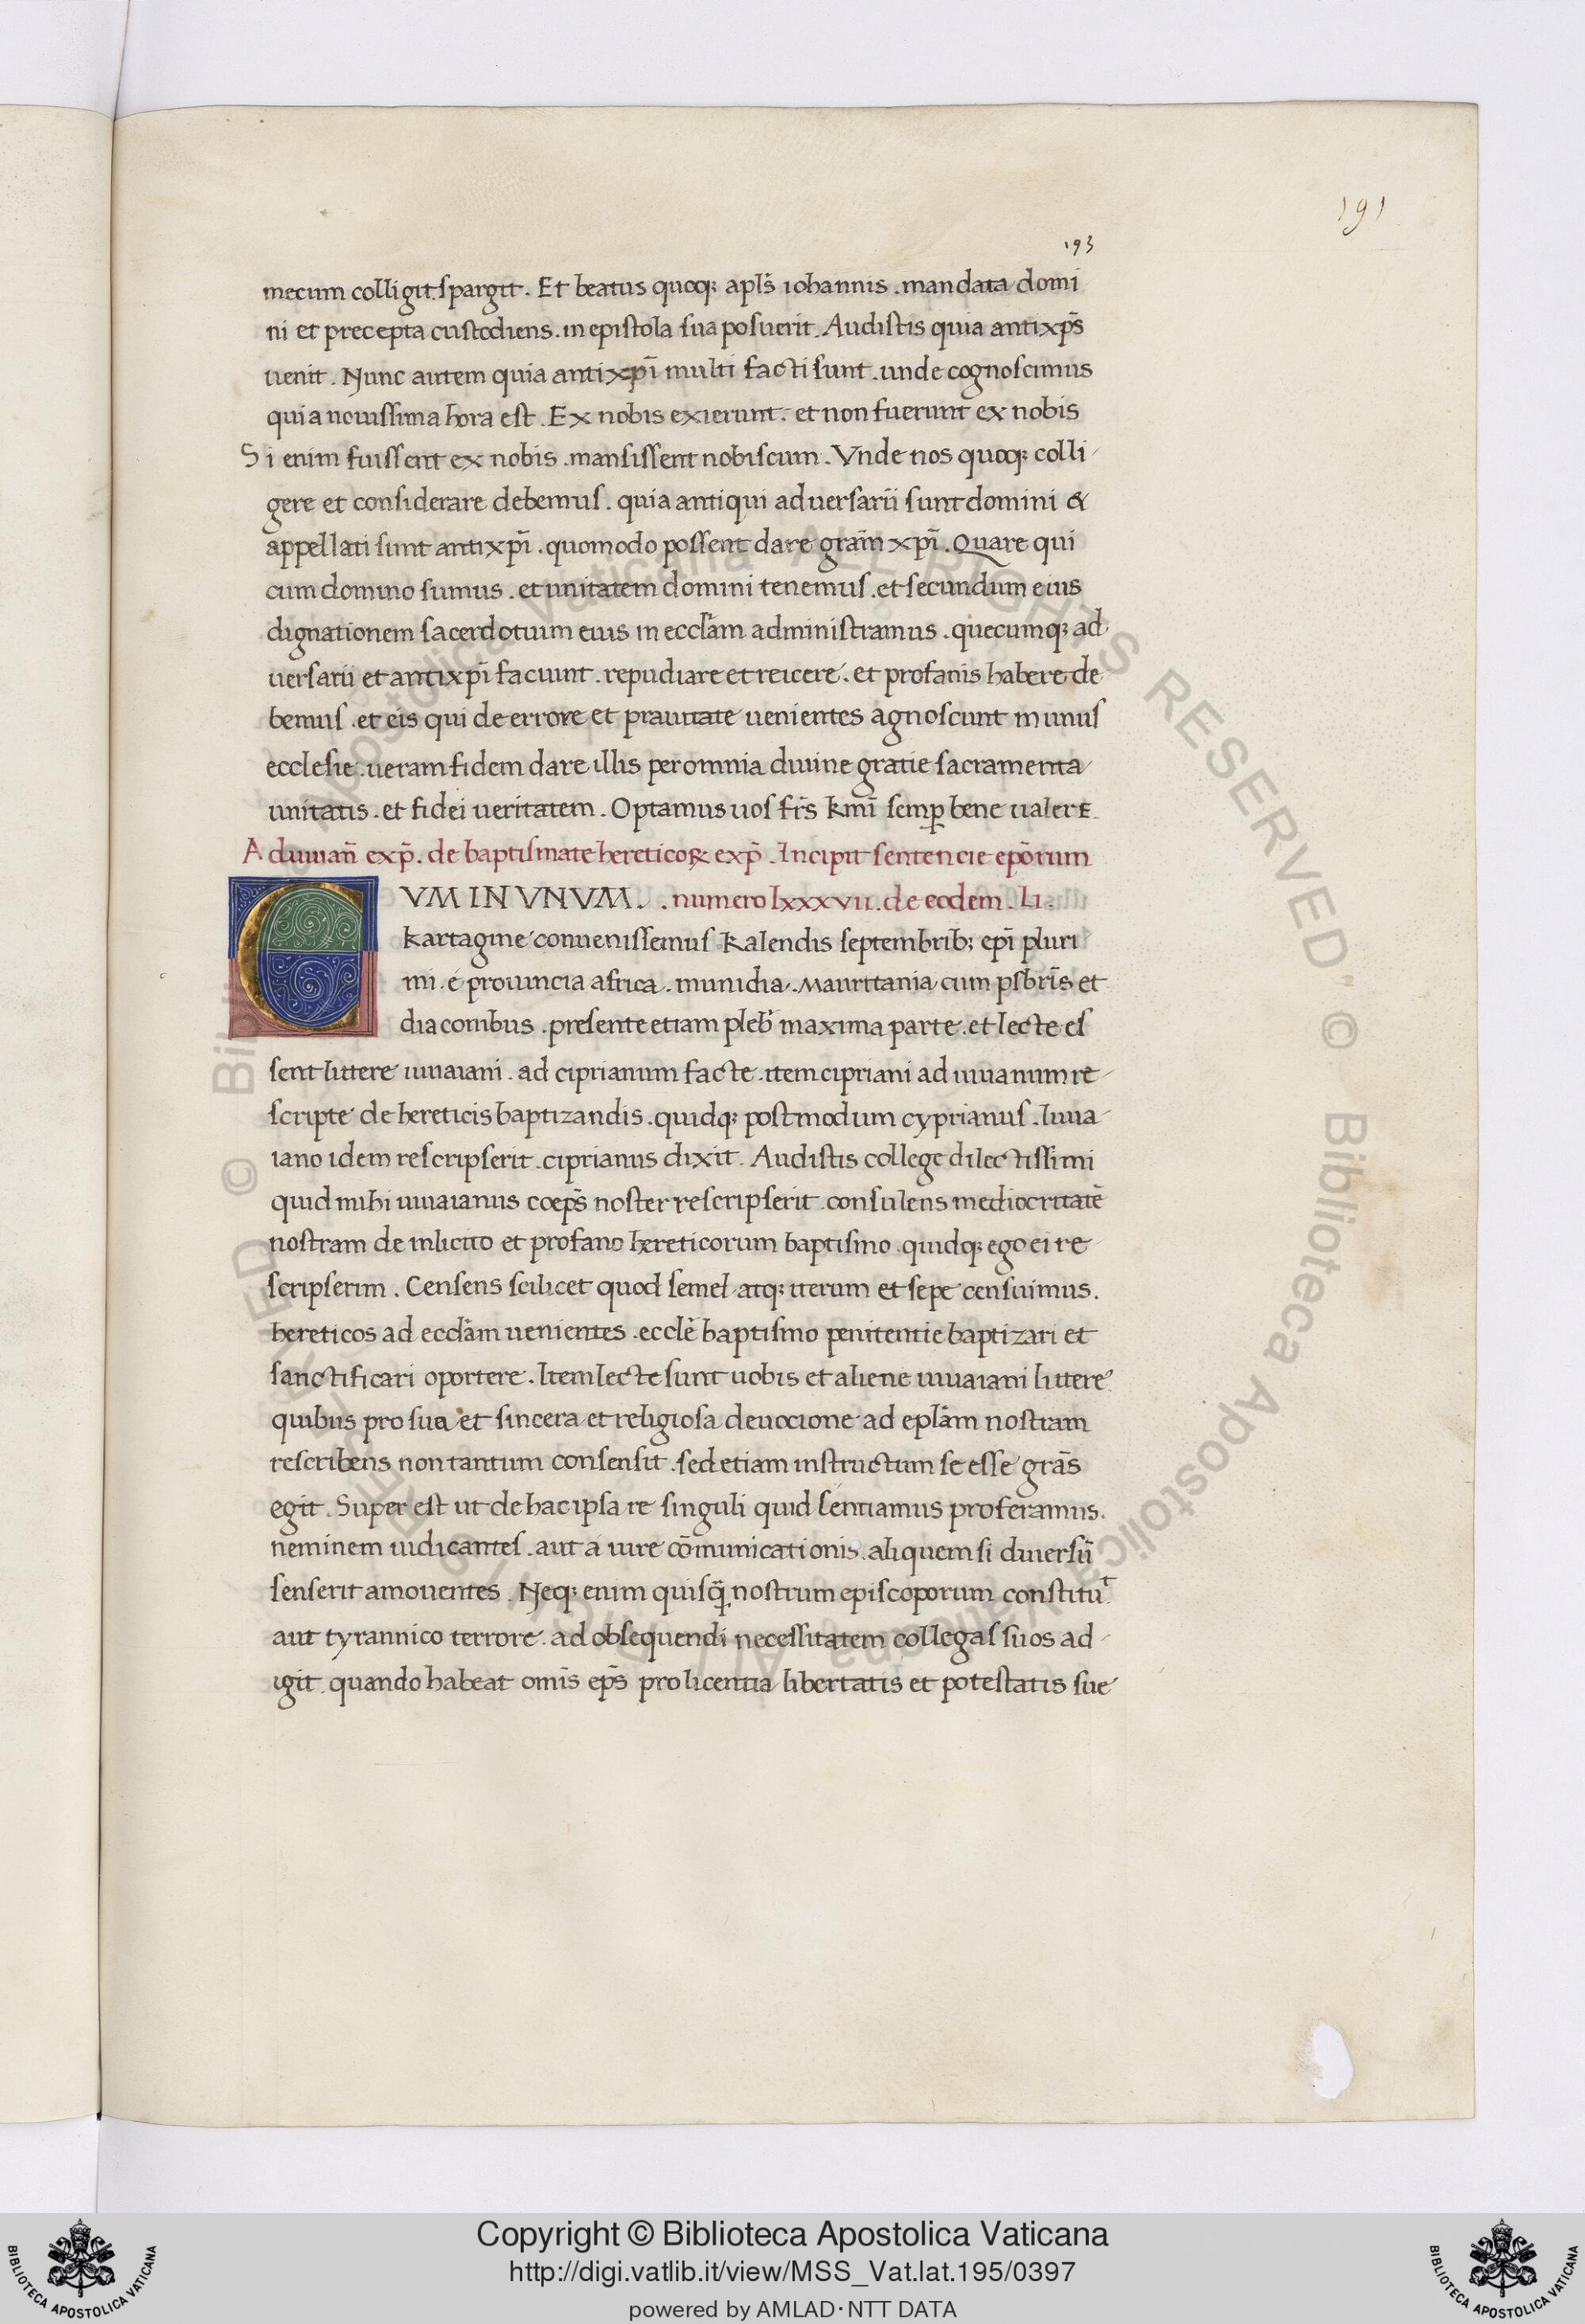 191
193
mecum colligit. spargit. Et beatus quoqꝫ apl̄s iohannis. mandata domi
ni et precepta custodiens. in epistola sua posuerit. Audistis quia antixp̄s
uenit. Nunc autem quia antixp̄i multi facti sunt. unde cognoscimus
quia nouissima hora est. Ex nobis exierunt. et non fuerunt ex nobis
Si enim fuissent ex nobis. mansissent nobiscum. Vnde nos quoqꝫ colli
gere et considerare debemus. quia antiqui aduersarii sunt domini &
appellati sunt antixp̄i. quomodo possent dare grām xp̄i. Quare qui
cum domino sumus. et unitatem domini tenemus. et secundum eius
dignationem sacerdotium eius in eccl̄am administramus. quecumqꝫ ad
uersarii et antixp̄i faciunt. repudiare et reicere. et profanis habere de
bemus. et eis qui de errore et prauitate uenientes agnoscunt munus
ecclesie. ueram fidem dare illis per omnia diuine gratie sacramenta
unitatis. et fidei ueritatem. Optamus uos fr̄s kmī semꝑ bene ualere.
Ad iuuian̄ exp̄. de baptismate hereticoꝝ exp̄. Incipit sentencie epōrum
CVM IN VNVM. . numero lxxxvii. de eodem. Li.
kartagine conuenissemus kalendis septembribꝫ epī pluri
mi. é prouincia africa. munidia. Mauritania cum psbrīs et
diaconibus. presente etiam pleb̄ maxima parte. et lecte es
sent littere iuuaiani. ad ciprianum facte. item cipriani ad iuuanum re
scripte de hereticis baptizandis. quidqꝫ postmodum cyprianus. Iuua
iano idem rescripserit. ciprianus dixit. Audistis college dilectissimi
quid mihi iuuaianus coep̄s noster rescripserit. consulens mediocritatē
nostram de inlicito et profano hereticorum baptismo. quidqꝫ ego ei re
scripserim. Censens scilicet quod semel atqꝫ iterum et sepe censuimus.
hereticos ad eccl̄am uenientes. eccl̄e baptismo penitentie baptizari et
sanctificari oportere. Item lecte sunt uobis et aliene iuuaiani littere
quibus pro sua et sincera et religiosa deuocione ad epl̄am nostram
rescribens non tantum consensit. sed etiam instructum se esse grās
egit. Super est ut de hac ipsa re singuli quid sentiamus proferamus.
neminem iudicantes. aut a iure cōmunicationis. aliquem si diuersū
senserit amouentes. Neqꝫ enim quisq̄ nostrum episcoporum constituᵗ
aut tyrannico terrore. ad obsequendi necessitatem collegas suos ad
igit. quando habeat omīs ep̄s pro licentia libertatis et potestatis sue
© Biblioteca Apostolica Vaticana ALL RIGHTS RESERVED © Biblioteca Apostolica Vaticana ALL RIGHTS RESERVED
Copyright © Biblioteca Apostolica Vaticana
http://digi.vatlib.it/view/MSS_Vat.lat.195/0397
powered by AMLAD·NTT DATA
BIBLIOTECA APOSTOLICA VATICANA
BIBLIOTECA APOSTOLICA VATICANA